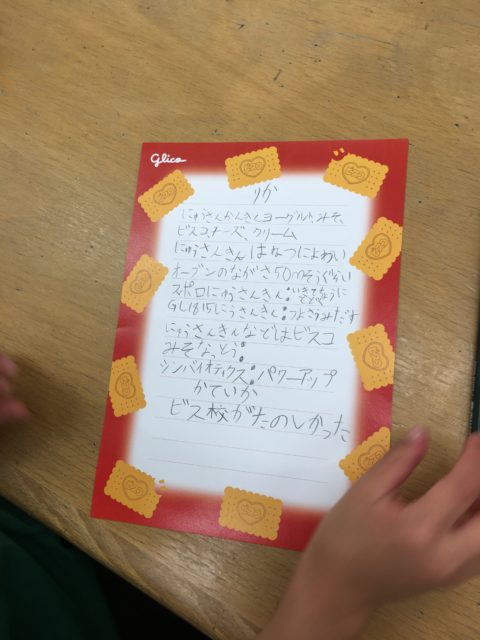 Glico
りか
にゅうさんきんヨーグルト、みそ、
ビスコ、チーズ、クリーム
にゅうさんきん はねつによわい
オーブンのながさ50mそうぐらい
スポロにゅうさんきん:いきてちょうにとどく
GL1815にうさんきん:つよさうみだす
にゅうさんきんなどはビスコ
みそなっとう:
シンバイオティクス:パワーアップ
かていか
ビス校がたのしかった